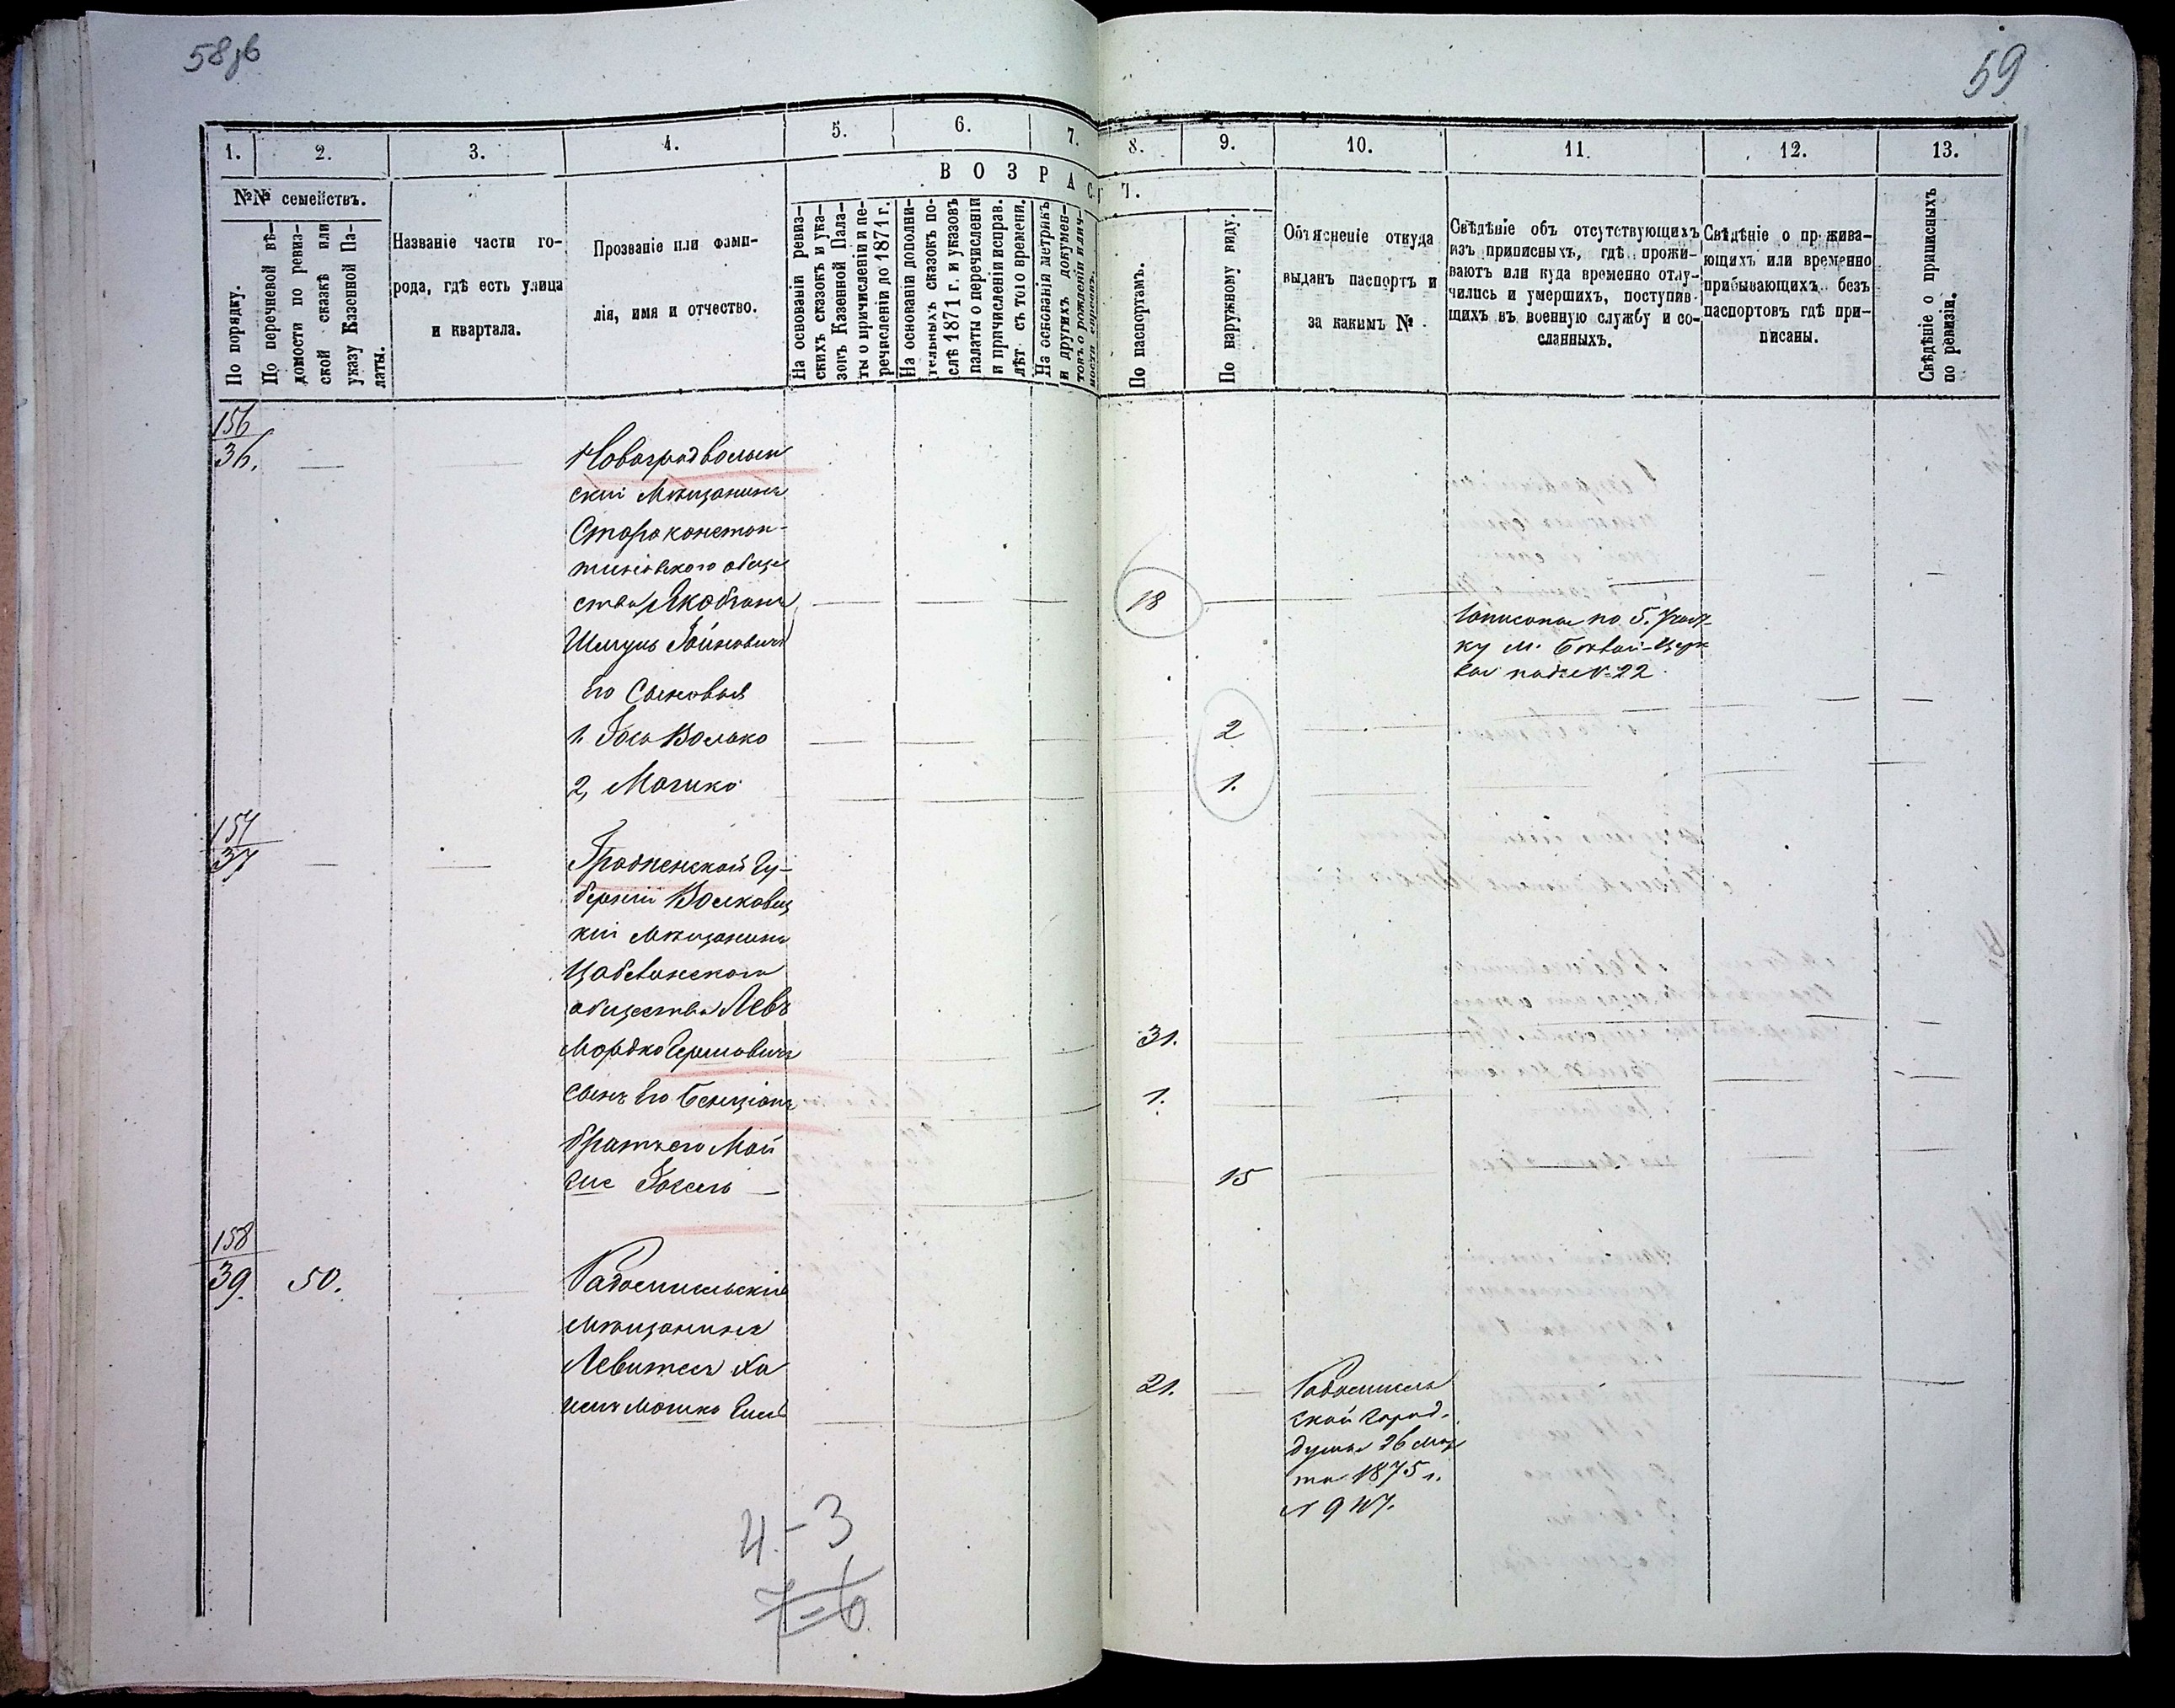 58об
59
1.
2.
3.
4.
5.
6.
7.
8.
9.
10.
11.
12.
13.
№№ семействъ.
ВОЗРАСТ.
По порядку.
По перечневой вѣ-
домости по ревиз-
ской сказкѣ или
указу Казенной Па-
латы.
Названіе части го-
рода, гдѣ есть улица
и квартала.
Прозваніе или фами-
лія, имя и отчество.
На основаніи ревиз-
скихъ сказокъ и ука-
зовъ Казенной Пала-
ты о причисленіи и пе-
речисленіи до 1871 г.
На основаніи дополни-
тельныхъ сказокъ по-
слѣ 1871 г. и указовъ
палаты о перечисленіи
и причисленіи исправ.
лѣт съ того времени.
На основаніи метрикъ
и другихъ докумен-
товъ о рожденіи и лич-
ности евреевъ.
По паспортамъ.
По наружному виду.
Объясненіе откуда
выданъ паспортъ и
за какимъ №.
Свѣдѣніе объ отсутствующихъ
изъ приписныхъ, гдѣ прожи-
ваютъ или куда временно отлу-
чились и умершихъ, поступив-
щихъ въ военную службу и со-
сланныхъ.
Свѣдѣніе о прожива-
ющихъ или временно
прибывающихъ безъ
паспортовъ гдѣ при-
писаны.
Свѣдѣніе о приписныхъ
по ревизіи.
156
36.
Новоградволын
скій Мѣщанинъ
Староконстан-
тиновскаго обще
ства Якобзонъ
Шмуль Іойновичъ
18
Записанъ по 5. Участ-
ку м. Бѣлой-Церк
ви подъ № 22
Его Сыновья
1. Іось Волько
2
2, Мошко
1.
157
37
Гродненской Гу-
берніи Волковы
кій мѣщанинъ
общества Левъ
Мордко Гершовичъ
31.
Сынъ Его Бенціонъ
1.
братъ его Мой
сис Іосель
15
158
39.
50.
Радомисльскій
мѣщанинъ
Левитъ Ха
21.
Радомисль
ской Город.
думы 26 Мар
та 1875 г.
4-3
7=6